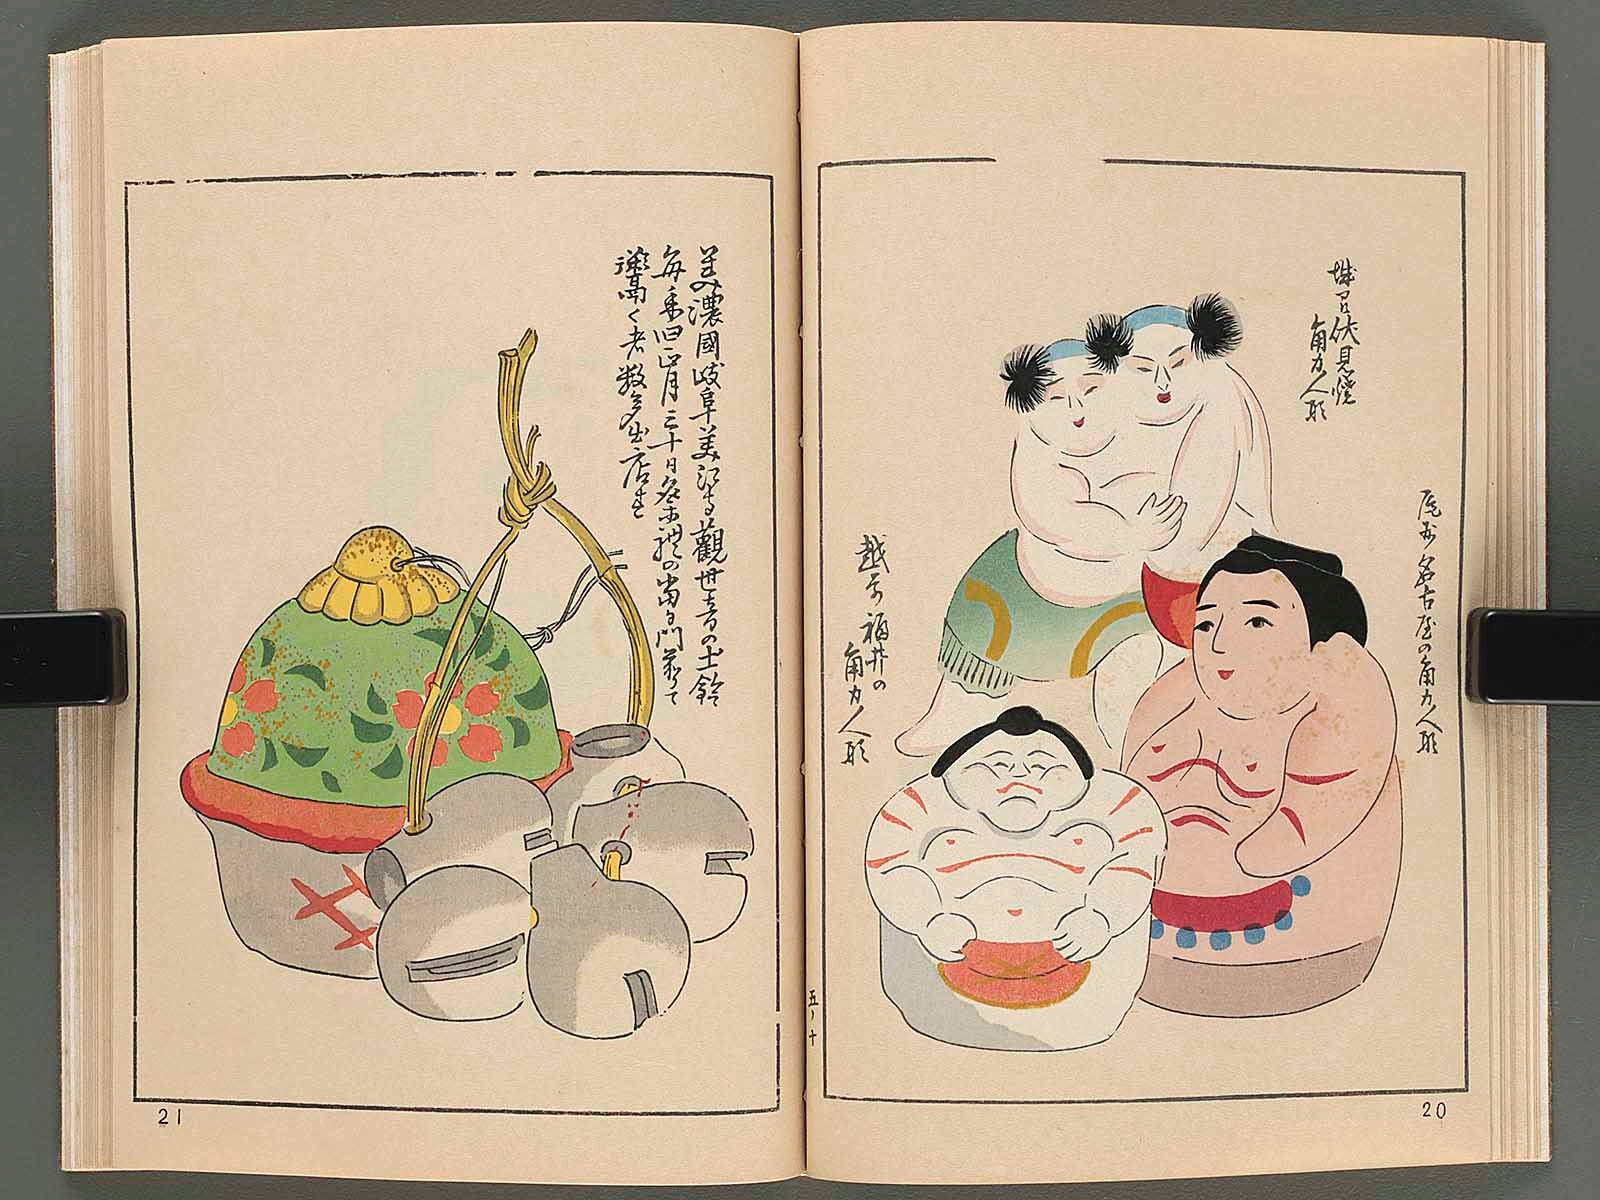 城州伏見焼
角力人形
尾州名古屋の角力人形
越前福井の
角力人形
五ノ十
20
美濃國岐阜美江寺觀世音の土鈴
毎年旧正月三十日祭礼の当日門前にて
鬻く者数多出店す
21